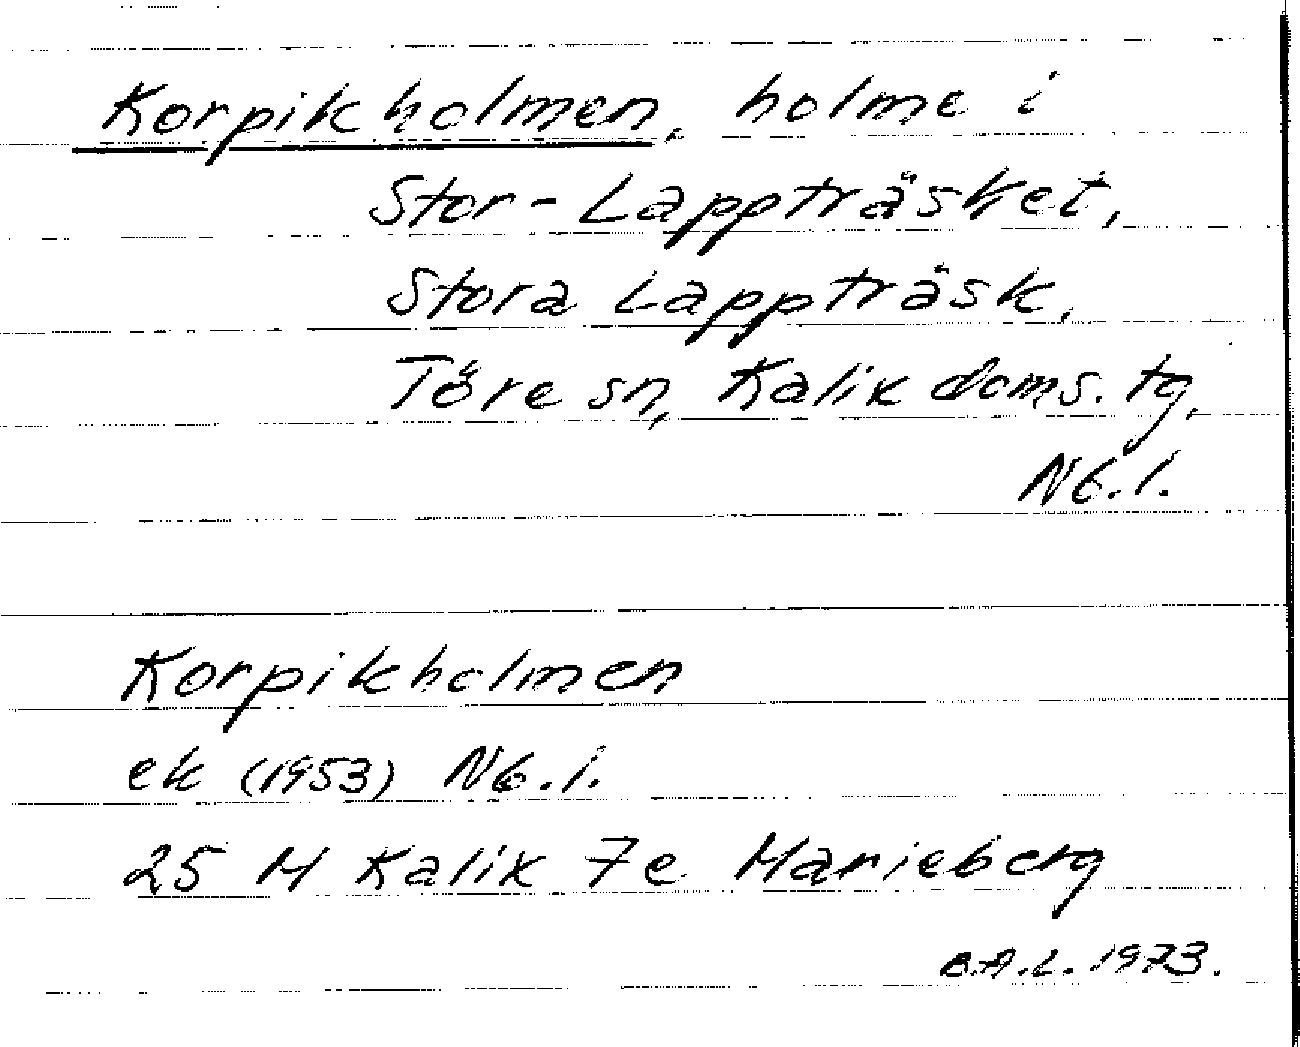 Korpikholmen, holme i
Stor-Lappträsket,
Stora Lappträsk,
Töre sn, Kalix doms. tg,
Nb. l.
Korpikholmen
ek (1953) Nb. l.
25 M Kalix 7e Marieberg
B.A.L. 1973.